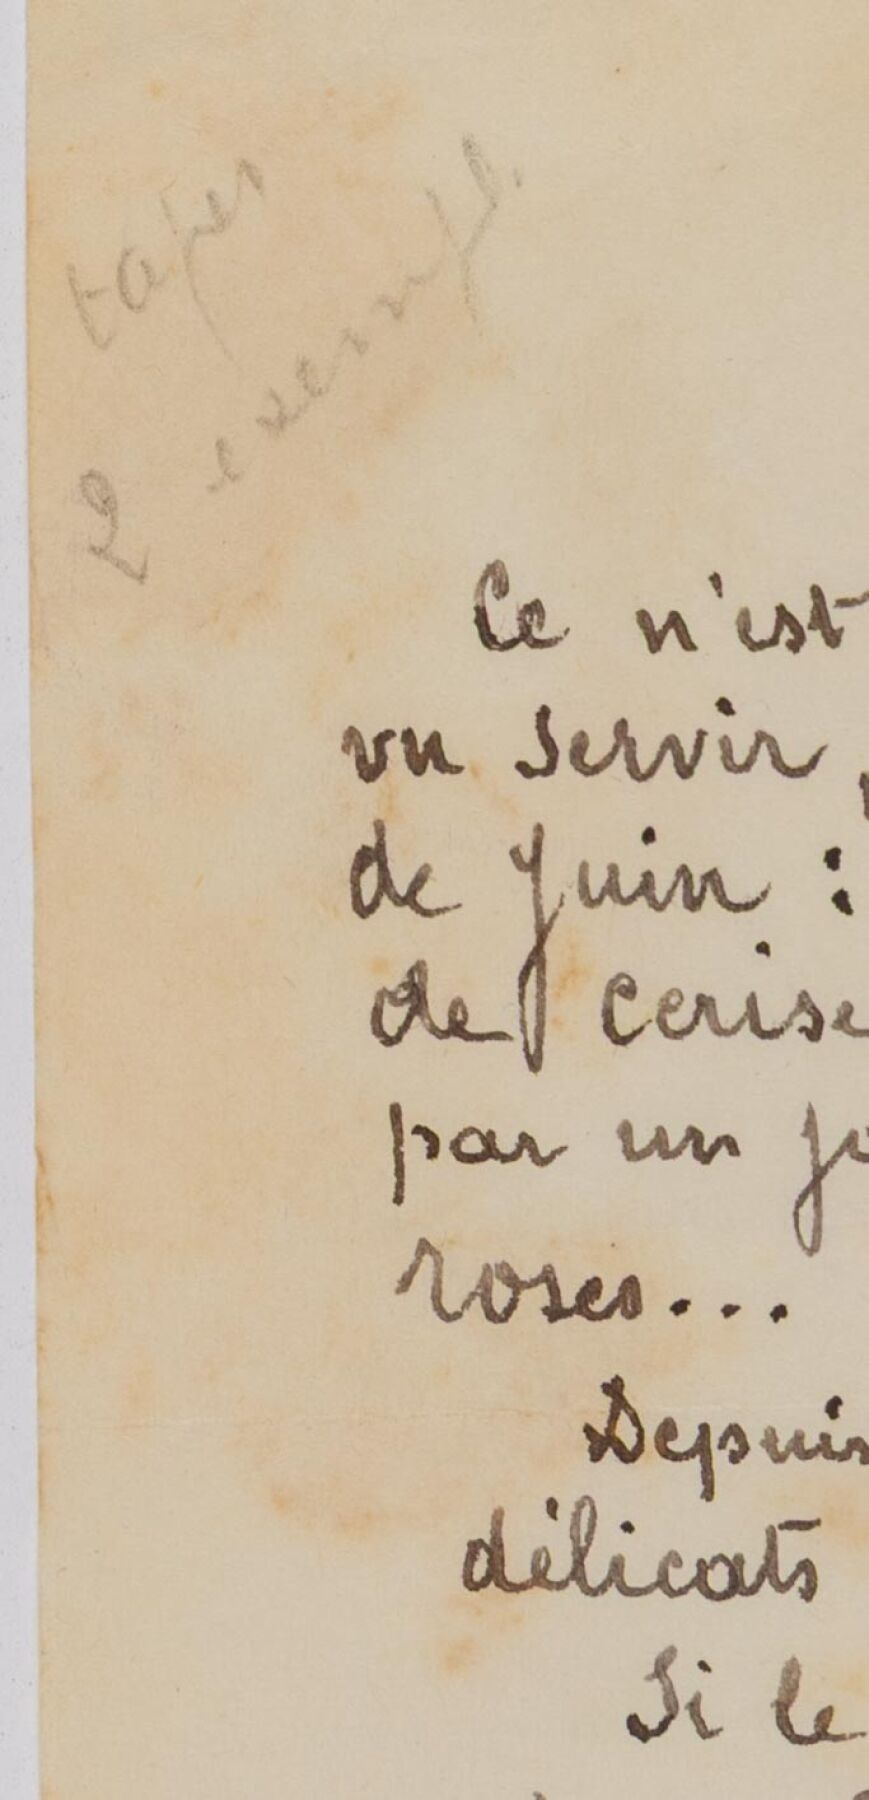 taper
2 exempl.
Ce n'est
vu servir
de Juin :
de cerise
par un jo
roses...
Depuis
délicats
Si le